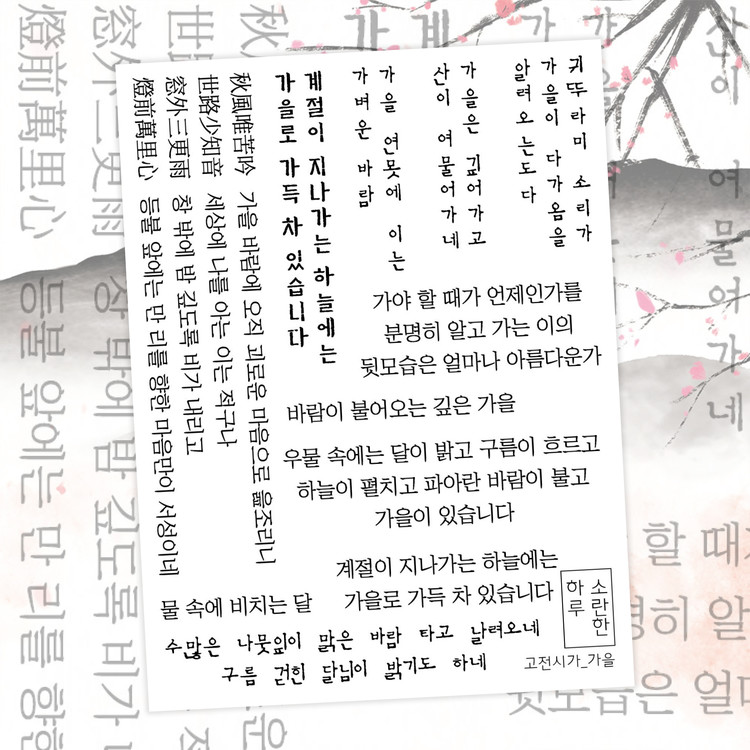 귀뚜라미 소리가
가을이 다가옴을
알려오는도다
가을은 깊어가고
산이 여물어가네
가을 연못에 이는
가벼운 바람
계절이 지나가는 하늘에는
가을로 가득 차 있습니다
秋風唯苦吟 가을 바람에 오직 괴로운 마음으로 읊조리니
世路少知音 세상에 나를 아는 이는 적구나
窓外三更雨 창 밖에 밤 깊도록 비가 내리고
燈前萬里心 등불 앞에는 만 리를 향한 마음만이 서성이네
가야 할 때가 언제인가를
분명히 알고 가는 이의
뒷모습은 얼마나 아름다운가
바람이 불어오는 깊은 가을
우물 속에는 달이 밝고 구름이 흐르고
하늘이 펼치고 파아란 바람이 불고
가을이 있습니다
계절이 지나가는 하늘에는
가을로 가득 차 있습니다
물 속에 비치는 달
수많은 나뭇잎이 맑은 바람 타고 날려오네
구름 걷힌 달님이 밝기도 하네
소란한
하루
고전시가_가을